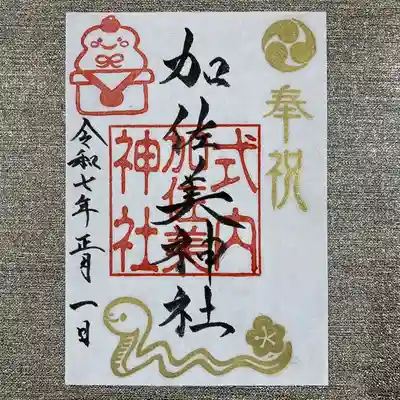 奉祝
加佐美神社
式内
加佐美
神社
令和七年正月一日
火